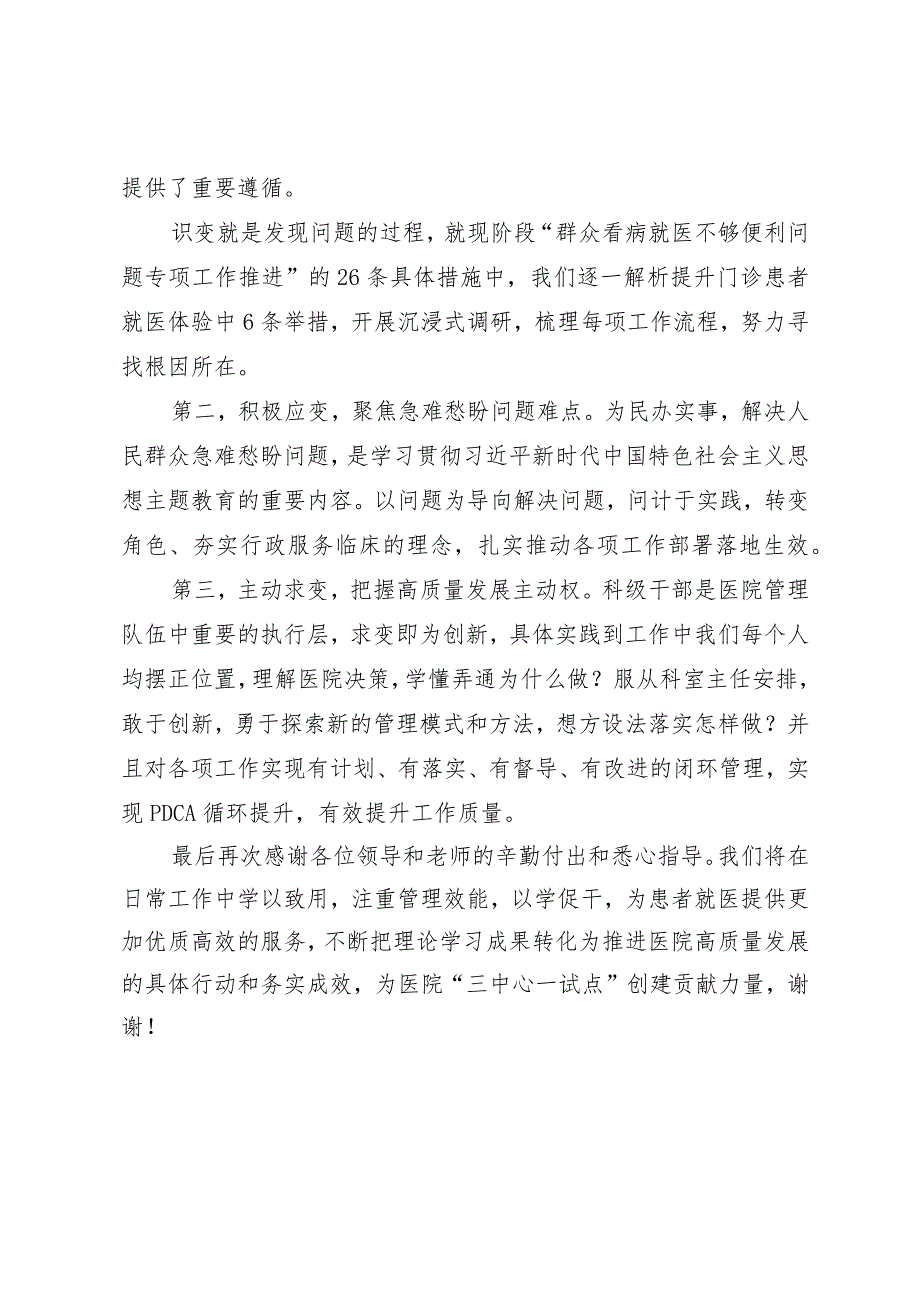 提供了重要遵循。
识变就是发现问题的过程，就现阶段“群众看病就医不够便利问
题专项工作推进”的26条具体措施中，我们逐一解析提升门诊患者
就医体验中6条举措，开展沉浸式调研，梳理每项工作流程，努力寻
找根因所在。
第二，积极应变，聚焦急难愁盼问题难点。为民办实事，解决人
民群众急难愁盼问题，是学习贯彻习近平新时代中国特色社会主义思
想主题教育的重要内容。以问题为导向解决问题，问计于实践，转变
角色、夯实行政服务临床的理念，扎实推动各项工作部署落地生效。
第三，主动求变，把握高质量发展主动权。科级干部是医院管理
队伍中重要的执行层，求变即为创新，具体实践到工作中我们每个人
均摆正位置，理解医院决策，学懂弄通为什么做？服从科室主任安排，
敢于创新，勇于探索新的管理模式和方法，想方设法落实怎样做？并
且对各项工作实现有计划、有落实、有督导、有改进的闭环管理，实
现PDCA循环提升，有效提升工作质量。
最后再次感谢各位领导和老师的辛勤付出和悉心指导。我们将在
日常工作中学以致用，注重管理效能，以学促干，为患者就医提供更
加优质高效的服务，不断把理论学习成果转化为推进医院高质量发展
的具体行动和务实成效，为医院“三中心一试点”创建贡献力量，谢
谢！